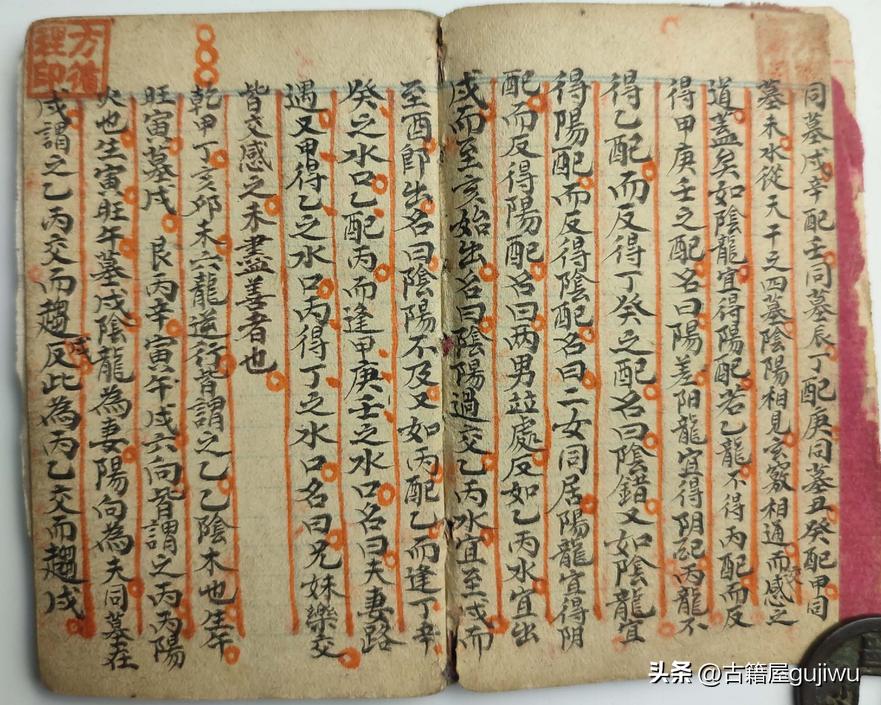 同墓戌辛配壬同墓辰丁配庚同墓丑癸配甲同
墓未水從天干之四墓陰陽相見玄竅相通而感之
道蓋矣如陰龍宜得陽配若乙龍不得丙配而反
得甲庚壬之配名曰陽差阳龍宜得阴配丙龍不
得乙配而反得丁癸之配名曰陰錯又如陰龍宜
得陽配而反得陰配名曰二女同居陽龍宜得阴
配而反得陽配名曰两男並處反如乙丙水宜出
戌而至亥始出名曰陰陽過交乙丙水宜至戌而
至酉即出名曰陰陽不及又如丙配乙而逢丁辛
癸之水口乙配丙而逢甲庚壬之水口名曰夫妻路
遇又甲得乙之水口丙得丁之水口名曰兄妹樂交
皆交感之未盡善者也
乾甲丁亥卯未六龍逆行皆謂之乙乙陰木也生午
旺寅墓戌 艮丙辛寅午戌六向皆謂之丙丙陽
火也生寅旺午墓戌陰龍為妻陽向為夫同墓在
戌謂之乙丙交而趨戌反此為丙乙交而趨戌
方
印
头条 @古籍屋gujiwu